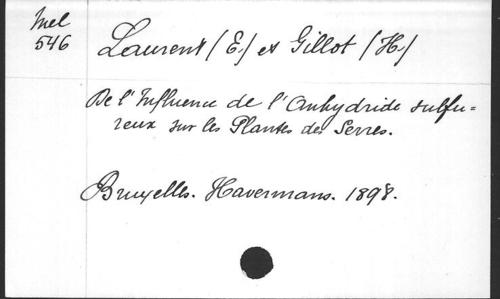 Mel
546
Laurent (E.) et Gillot (H.)
De l'Influence de l'Anhydride sulfu-
reux sur les Plantes des Serres.
Bruxelles. Havermans. 1898.